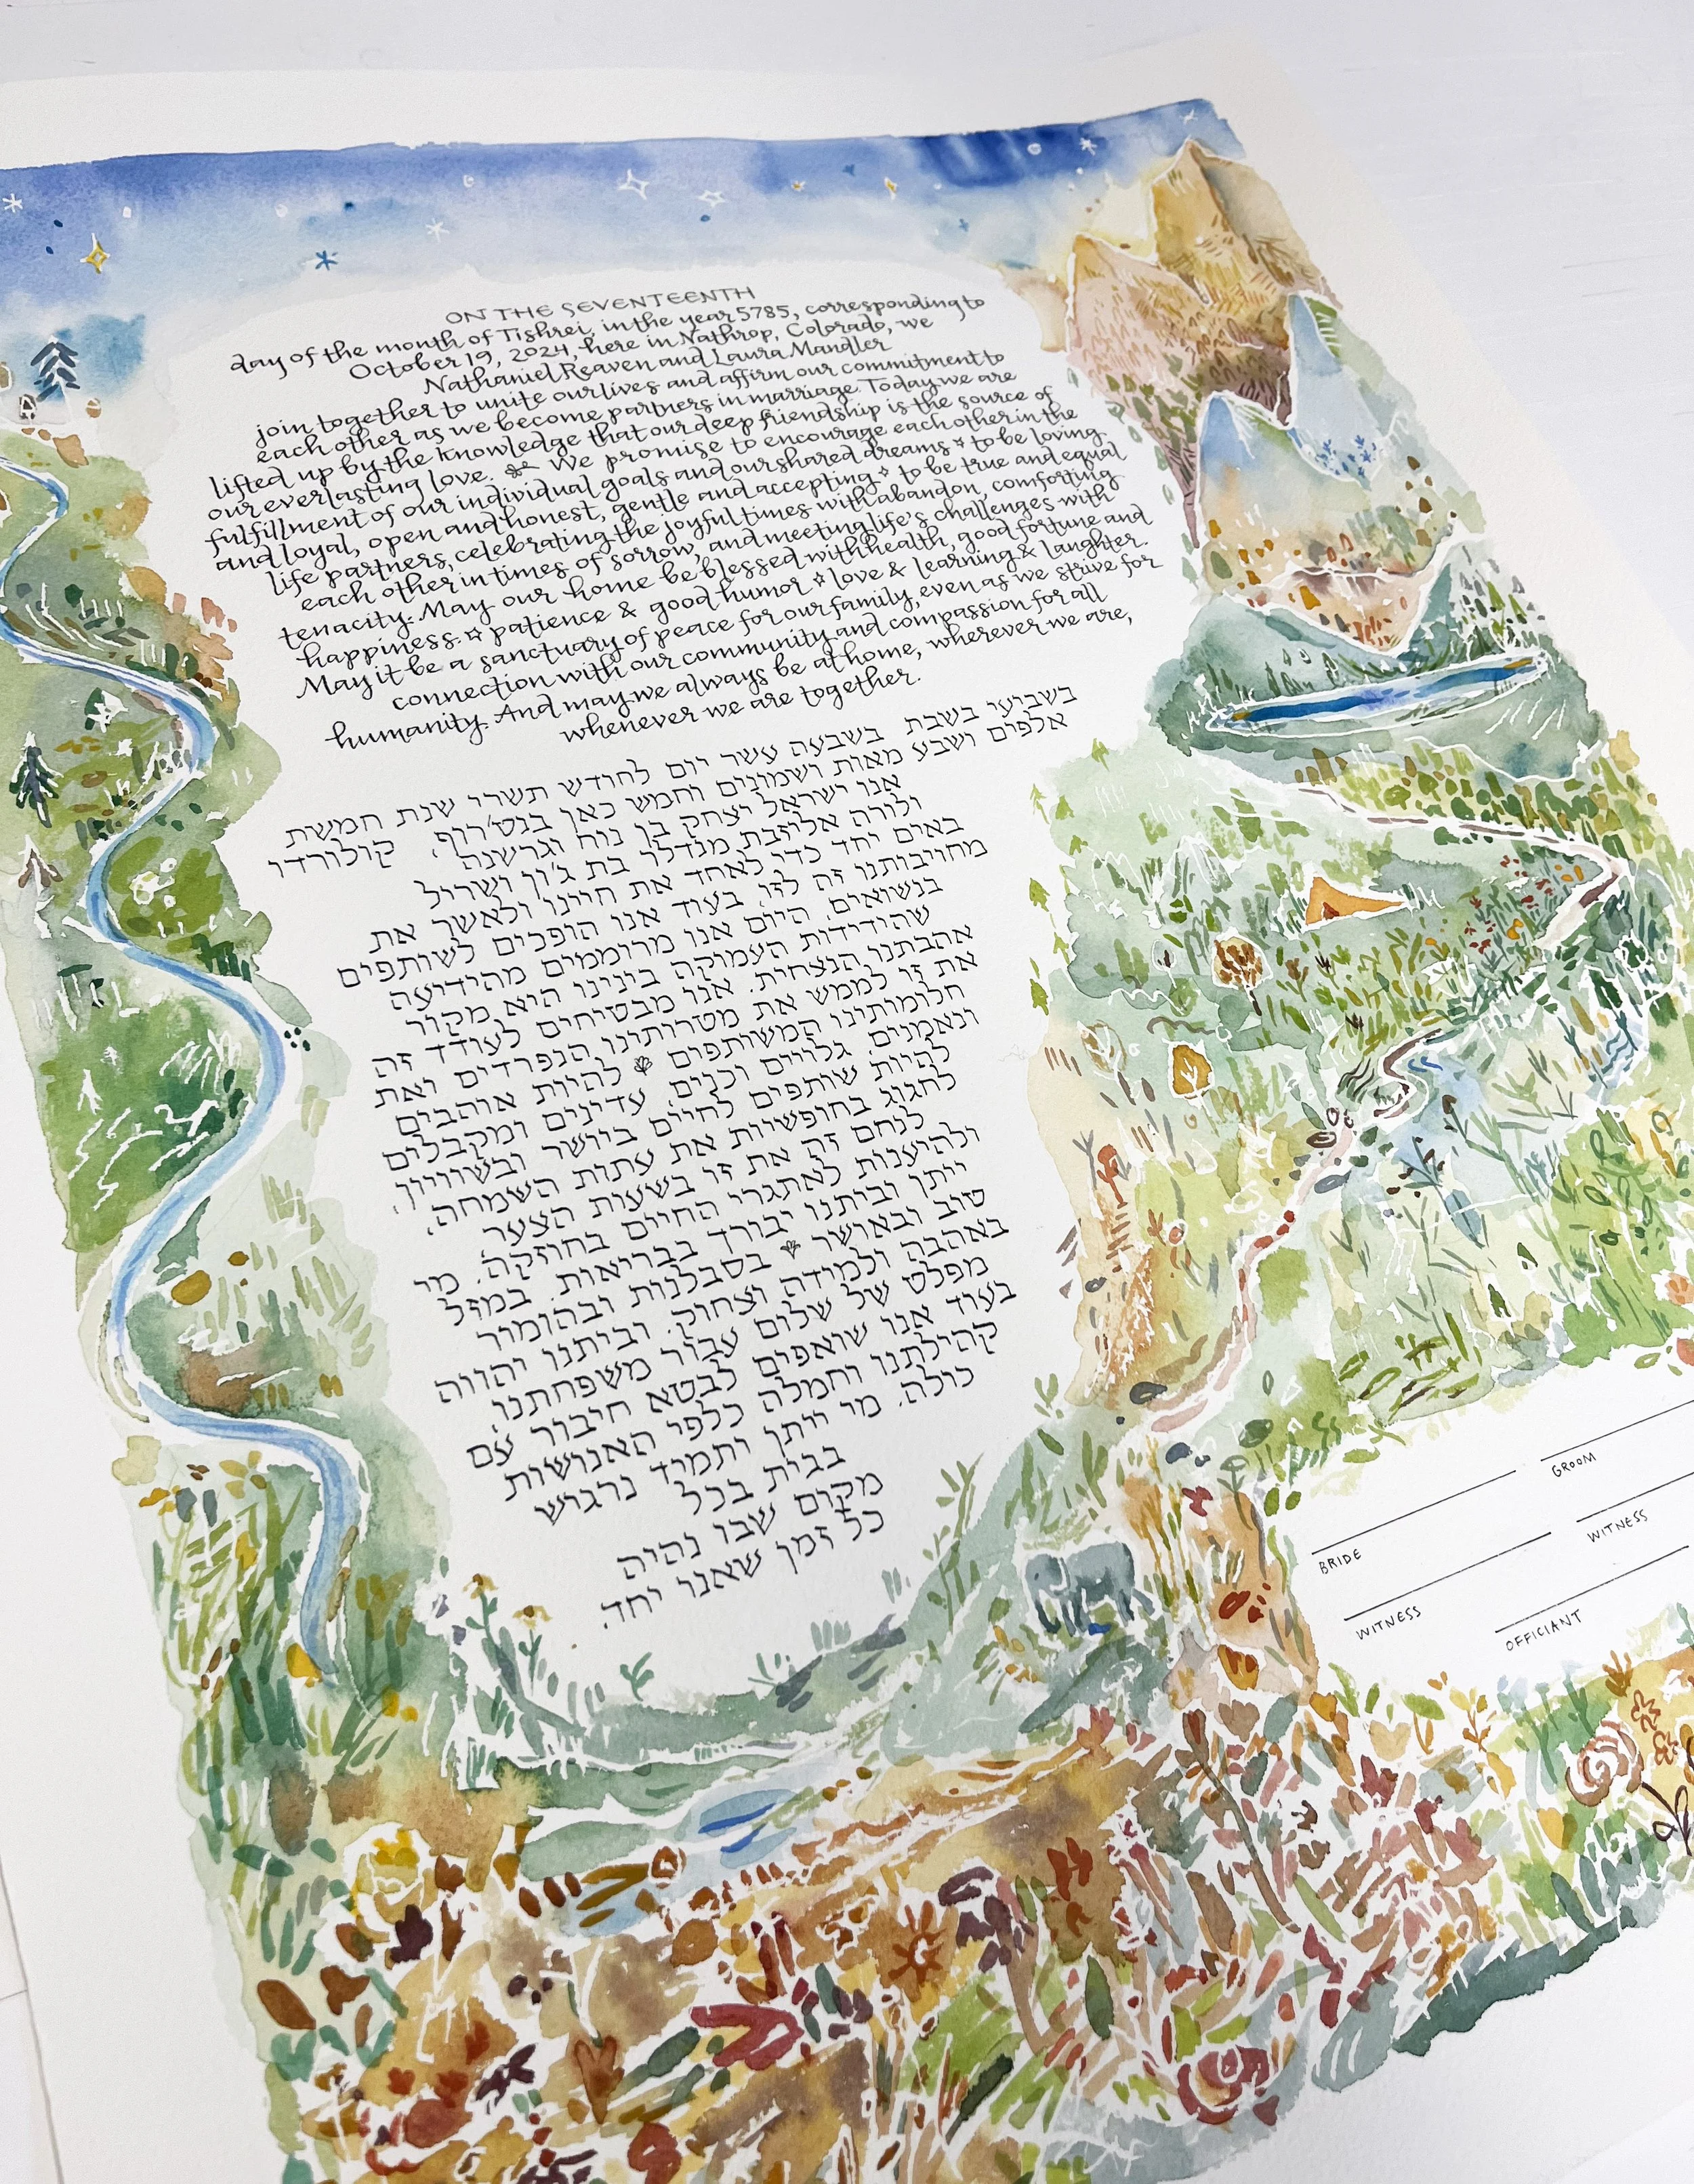 ON THE SEVENTEENTH
day of the month of Tishrei, in the year 5785, corresponding to
October 19, 2024, here in Nathrop, Colorado, we
Nathaniel Reaven and Laura Mandler
join together to unite our lives and affirm our commitment to
each other as we become partners in marriage. Today we are
lifted up by the knowledge that our deep friendship is the source of
our everlasting love. We promise to encourage each other in the
fulfillment of our individual goals and our shared dreams to be loving
and loyal, open and honest, gentle and accepting to be true and equal
life partners, celebrating the joyful times with abandon, comforting
each other in times of sorrow, and meeting life's challenges with
tenacity. May our home be blessed with health, good fortune and
happiness. ☆ patience & good humor love & learning & laughter.
May it be a sanctuary of peace for our family, even as we strive for
connection with our community and compassion for all
humanity. And may we always be at home, wherever we are,
whenever we are together.
בשביעי בשבת בשבעה עשר יום לחודש תשרי שנת חמשת
אלפים ושבע מאות ושמונים וחמש כאן בנט'רופ, קולורדו
אנו ישראל יצחק בן נוח וגרשנה
ולורה אליזבת מנדלר בת ג'ון ושריל
באים יחד כדי לאחד את חיינו ולאשר את
מחויבותנו זה לזו, בעוד אנו הופכים לשותפים
בנשואים. היום אנו מרוממים מהידיעה
שהידידות העמוקה בינינו היא מקור
אהבתנו הנצחית. אנו מבטיחים לעודד זה
את זו לממש את מטרותינו הנפרדים ואת
חלומותינו המשותפים להיות אוהבים
ונאמנים, גלויים וכנים, עדינים ומקבלים
להיות שותפים לחיים ביושר ובשוויון,
לחגוג בחופשיות את עתות השמחה,
לנחם זה את זו בשעות הצער
ולהיענות לאתגרי החיים בחוזקה. מי
ייתן וביתנו יבורך בבריאות, במזל
טוב ובאושר בסבלנות ובהומור
באהבה ולמידה וצחוק. וביתנו יהווה
מפלט של שלום עבור משפחתנו,
בעוד אנו שואפים לבטא חיבור עם
קהילתנו וחמלה כלפי האנושות
כולה. מי ייתן ותמיד נרגיש
בבית בכל
מקום שבו נהיה
כל זמן שאנו יחד.
BRIDE
GROOM
WITNESS
WITNESS
OFFICIANT